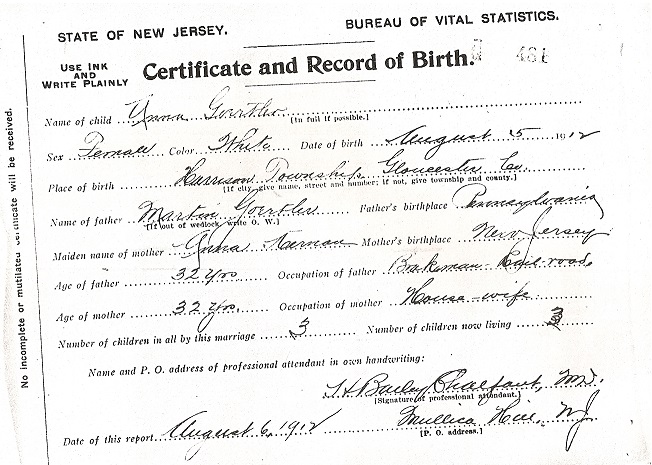 STATE OF NEW JERSEY. BUREAU OF VITAL STATISTICS.
USE INK
AND
WRITE PLAINLY
Certificate and Record of Birth.
Name of child Anna Goertler
[In full if possible.]
Sex Female Color White Date of birth August 5 1912
Place of birth Harrison Township Gloucester Co.
[If city, give name, street and number; if not, give township and county.]
Name of father Martin Goertler Father's birthplace Pennsylvania
[If out of wedlock, write O. W.]
Maiden name of mother Anna Mother's birthplace New Jersey
Age of father 32 yrs Occupation of father Brakeman Railroad
Age of mother 32 yrs. Occupation of mother House-wife
Number of children in all by this marriage 3 Number of children now living 3
Name and P. O. address of professional attendant in own handwriting:
Bailey Chalfant, M.D.
[Signature of professional attendant.]
Date of this report August 6, 1912 Mullica Hill, N.J.
[P. O. address.]
No incomplete or mutilated certificate will be received.